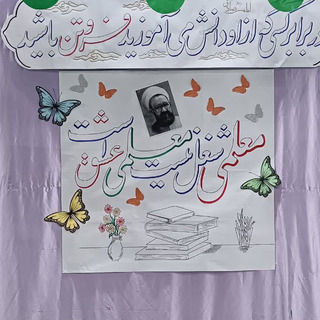 در برابر کسی که از او دانش می آموزید فروتن باشید
معلمی شغل نیست معلمی عشق است